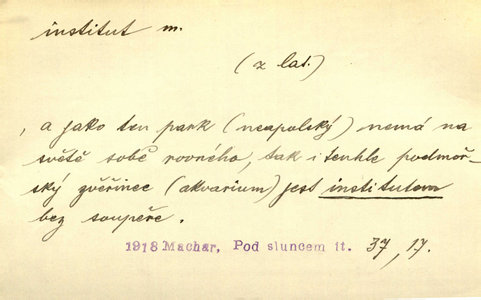 institut m.
(z lat.)
, a jako ten park (neapolský) nemá na
světě sobě rovného, tak i tenhle podmoř-
ský zvěřinec (akvarium) jest institutem
bez soupeře.
1918 Machar, Pod sluncem it. 37, 17.